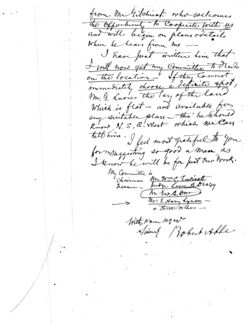 from Mr Gilchrist who welcomes
the opportunity to cooperate with us
and will begin on plans & details
when he hears from me —
I have just written him that
I will now get my Committee to decide
on the location. If they cannot
immediately choose a definite spot,
Mr G knows the lay of the land
which is flat — and available for
any suitable plan — tho' he should
know N. S. E. West which we can
tell him.
I feel most grateful to you
for suggesting so good a man as
I know he will be for just our work.
My Committee is
Chairman Mr Wm C. Endicott
Judge
Mr Geo B. Dorr
Mr
& three others
With warm regards
Robert Abbe